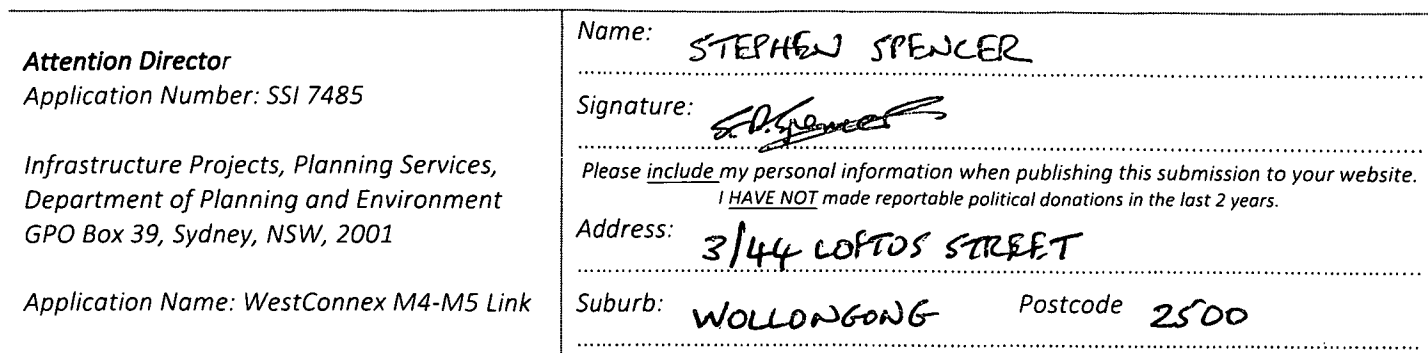 Attention Director
Application Number: SSI 7485
Infrastructure Projects, Planning Services,
Department of Planning and Environment
GPO Box 39, Sydney, NSW, 2001
Application Name: WestConnex M4-M5 Link
Name: STEPHEN SPENCER
Signature: S.D.Spencer
Please include my personal information when publishing this submission to your website.
I HAVE NOT made reportable political donations in the last 2 years.
Address: 3/44 LOFTOS STREET
Suburb: WOLLONGONG Postcode 2500